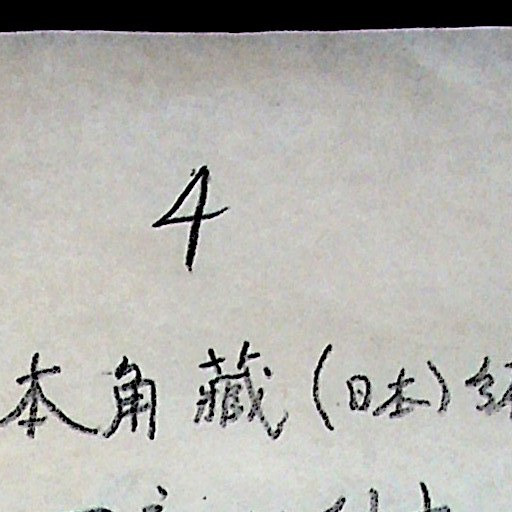 4
本角藏(日本)